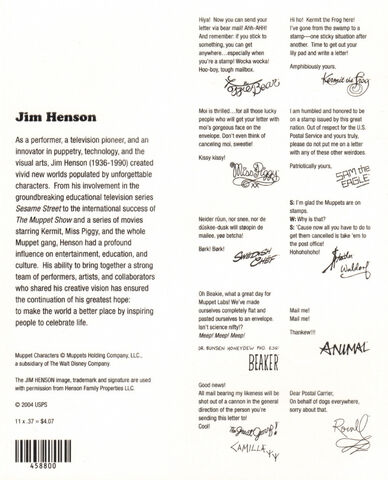 Jim Henson
As a performer, a television pioneer, and an
innovator in puppetry, technology, and the
visual arts, Jim Henson (1936-1990) created
vivid new worlds populated by unforgettable
characters. From his involvement in the
groundbreaking educational television series
Sesame Street to the international success of
The Muppet Show and a series of movies
starring Kermit, Miss Piggy, and the whole
Muppet gang, Henson had a profound
influence on entertainment, education, and
culture. His ability to bring together a strong
team of performers, artists, and collaborators
who shared his creative vision has ensured
the continuation of his greatest hope:
to make the world a better place by inspiring
people to celebrate life.
Muppet Characters © Muppets Holding Company, LLC.,
a subsidiary of The Walt Disney Company.
The JIM HENSON image, trademark and signature are used
with permission from Henson Family Properties LLC.
© 2004 USPS
11 x .37 = $4.07
458800
Hiya! Now you can send your
letter via bear mail! Ahh-AHH!
And remember: if you stick to
something, you can get
anywhere...especially when
you're a stamp! Wocka wocka!
Hoo-boy, tough mailbox.
Fozzie Bear
Hi ho! Kermit the Frog here!
I've gone from the swamp to a
stamp—one sticky situation after
another. Time to get out your
lily pad and write a letter!
Amphibiously yours,
Kermit the Frog
Moi is thrilled...for all those lucky
people who will get your letter with
moi's gorgeous face on the
envelope. Don't even think of
canceling moi, sweetie!
Kissy kissy!
Miss Piggy
XX
I am humbled and honored to be
on a stamp issued by this great
nation. Out of respect for the U.S.
Postal Service and yours truly,
please do not put me on a letter
with any of these other weirdoes.
Patriotically yours,
SAM THE
EAGLE
Neider rüun, nor snee, nor de
düskee-dusk will støopin de
mailee, yøø betcha!
Børk! Børk!
SWEDISH
CHEF
S: I'm glad the Muppets are on
stamps.
W: Why is that?
S: 'Cause now all you have to do to
get them cancelled is take 'em to
the post office!
Hohohohoho!
Statler
Waldorf
Oh Beakie, what a great day for
Muppet Labs! We've made
ourselves completely flat and
pasted ourselves to an envelope.
Isn't science nifty!?
Meep! Meep! Meep!
DR. BUNSEN HONEYDEW PHD. ESQ.
BEAKER
Mail me!
Mail me!
Thankew!!!
ANIMAL
Good news!
All mail bearing my likeness will be
shot out of a cannon in the general
direction of the person you're
sending this letter to!
Cool!
The Great Gonzo!
CAMILLA
Dear Postal Carrier,
On behalf of dogs everywhere,
sorry about that.
Rowlf